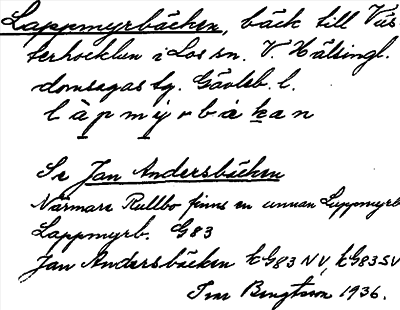 Lappmyrbäcken, bäck till Väs
terhocklan i Los sn. V. Hälsingl.
domsagas tg. Gävleb. l.
l à p m ý r b ä k a n
Se Jan Andersbäcken
Närmare Rullbo finns en annan Lappmyrb
Lappmyrb. G83
Jan Andersbäcken kG83NV, kG83SV
Bengtsson 1936.